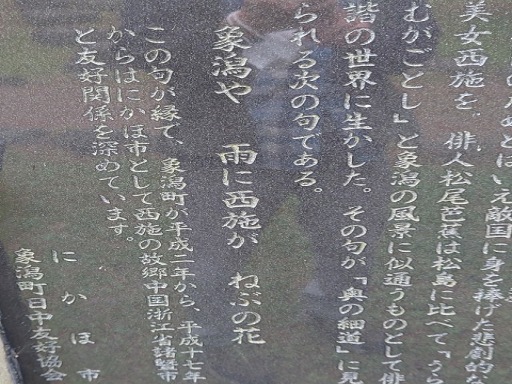 のためとはいえ敵国に身を捧げた悲劇的な
美女西施を。俳人松尾芭蕉は松島に比べて「うら
むがごとし」と象潟の風景に似通うものとして俳
諧の世界に生かした。その句が『奥の細道』に見
られる次の句である。
象潟や 雨に西施が ねぶの花
この句が縁で、象潟町が平成二年から、平成十七年
からはにかほ市として西施の故郷中国浙江省諸暨市
と友好関係を深めています。
にかほ市
象潟町日中友好協会